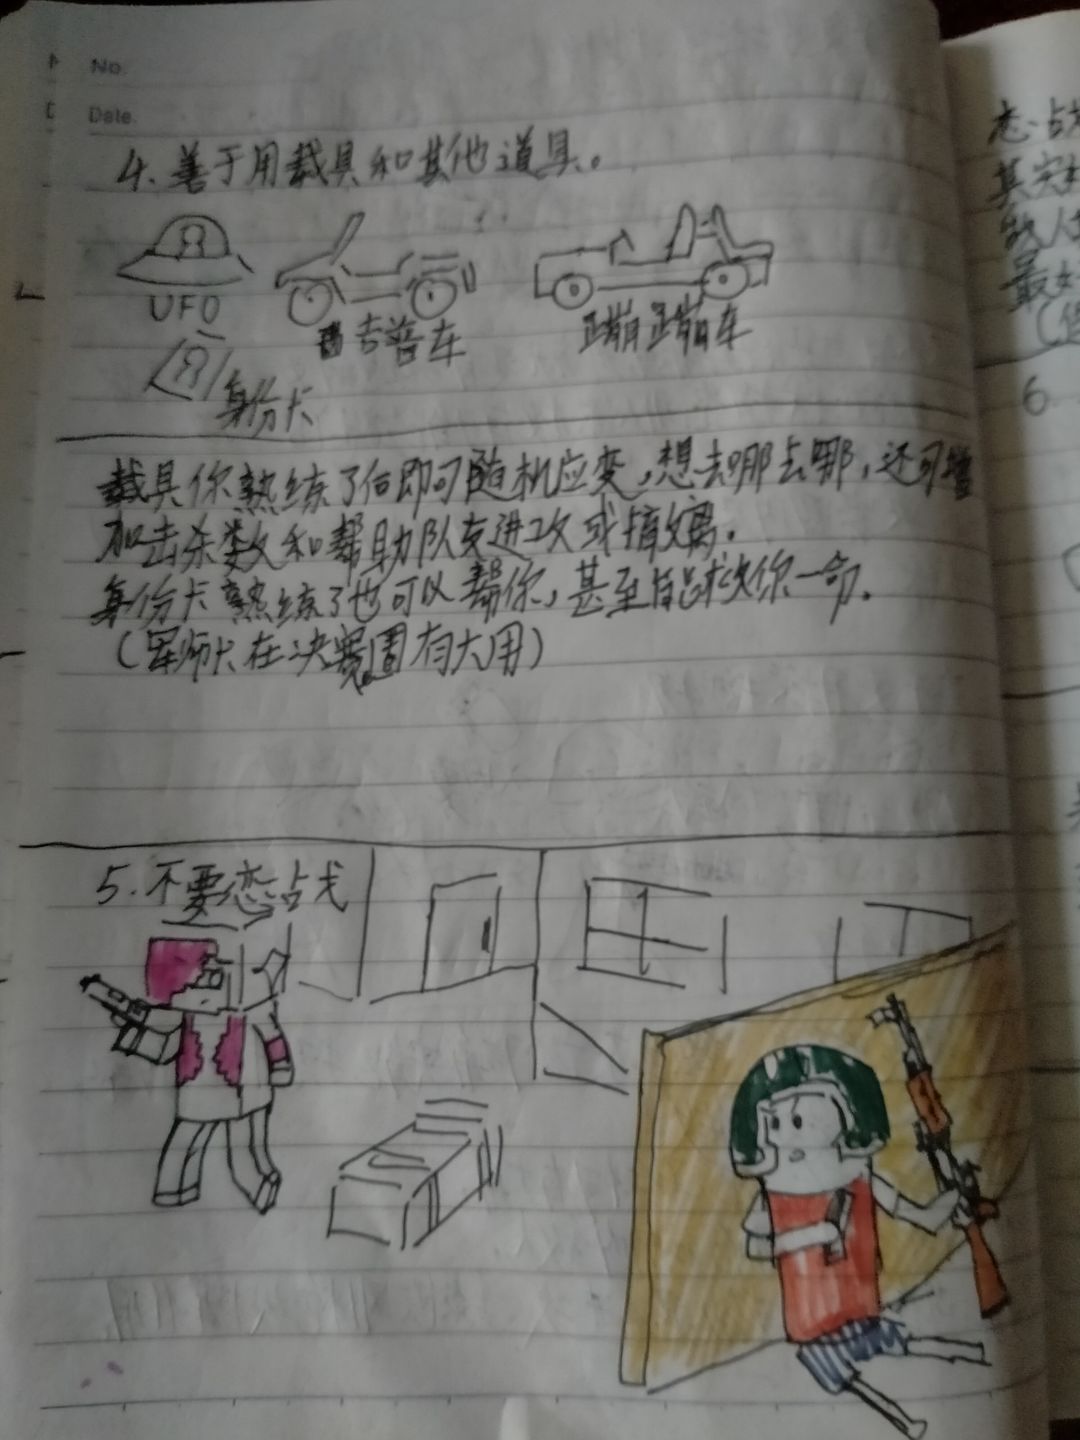 No.
Date.
4、善于用载具和其他道具。
UFO
吉普车
蹦蹦车
身份卡
载具你熟练了后即可随机应变,想去哪去哪,还可增
加击杀数和帮助队友进攻或撤离.
身份卡熟练了也可以帮你,甚至能救你一命.
(军师卡在决赛圈有大用)
5.不要恋战
恋战
其实
敌人
最好
6